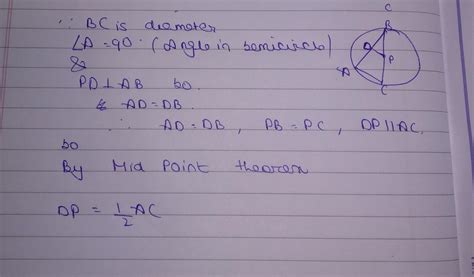 ∵ BC is diameter
∠A = 90° (Angle in semicircle)
&
PD ⊥ AB so
& AD = DB.
∴ AD = DB, PB = PC, DP || AC.
so
By Mid Point theorem
DP = 1/2 AC
C
B
D
P
A
C